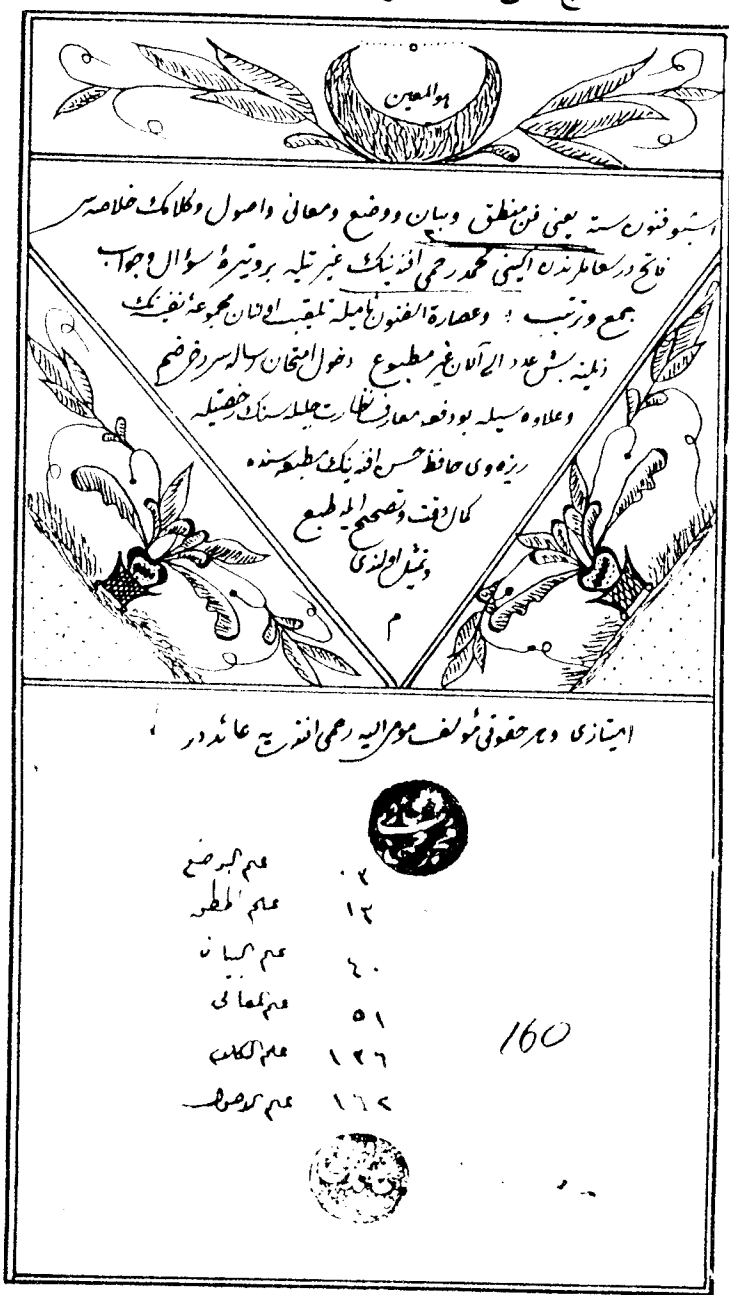 هو المعين
اشبو فنون سته يعنى فن منطق وبيان ووضع ومعانى واصول وكلامك خلاصه سى
فاتح درسعاملرندن اكينى محمد رحمى افندينك غيرتيله بروتيرهٔ سؤال وجواب
جمع وترتيب ؛ وعصارة الفنون ناميله تلقيب اولنان مجموعهٔ نفيسه نك
ذيلينه بش عدد الى الآن غير مطبوع دخول امتحان رساله سى دخى ضم
وعلاوه سيله بودفعه معارف نظارت جليله سنك رخصتيله
ريزه وى حافظ حسن افندينك مطبعه سنده
كمال دقت وتصحيح ايله طبع
وتمثيل اولندى
م
امتيازى وهر حقوقى مؤلف مومى اليه رحمى افندى يه عائددر
علم الوضع ٠٣
علم المنطق ١٣
علم البيان ٤٠
علم المعانى ٥١
علم الكلام ١٣٦
علم الاصول ١٦٢
160